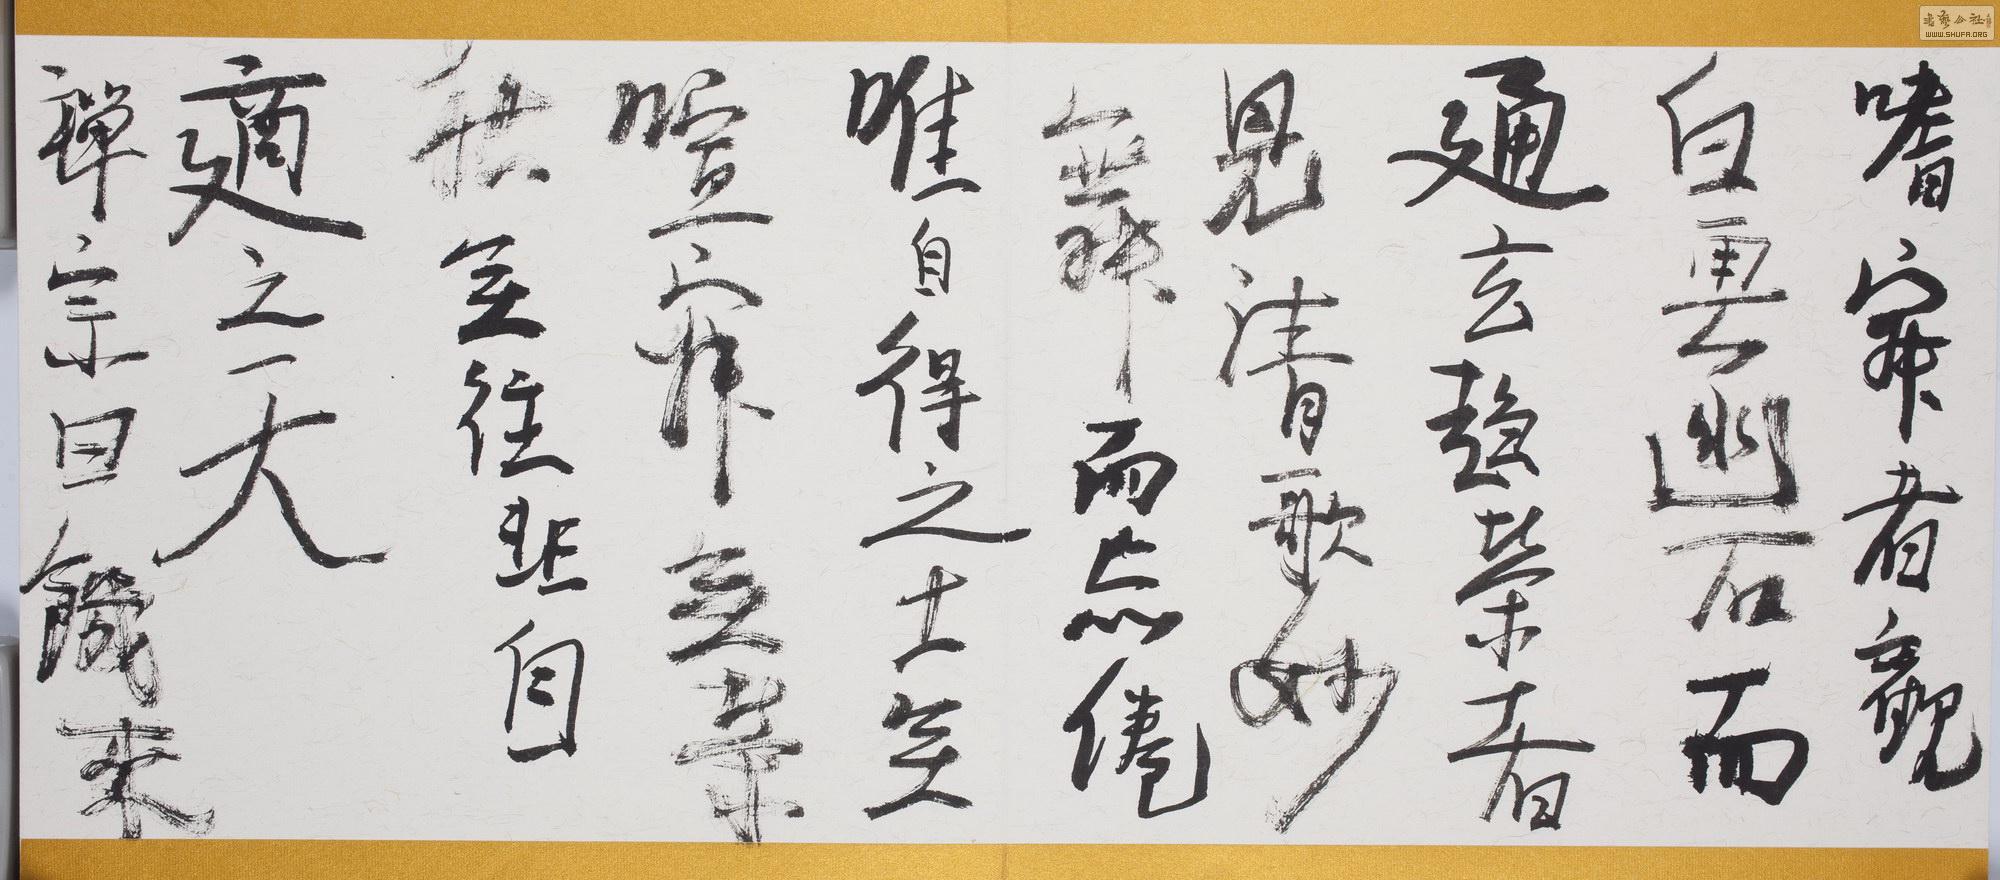 嗜寂者觀
白雲幽石而
通玄趨榮者
見清歌妙
舞而忘倦
唯自得之士无
喧寂无榮
枯无往非自
適之天
禪宗曰饑來
書藝公社
WWW.SHUFA.ORG